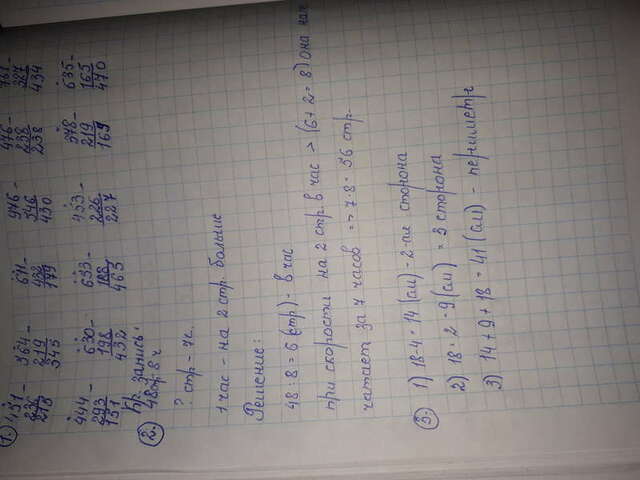 1.
451- 564- 611- 976- 476- 761-
236 219 432 546 238 327
215 345 179 430 238 434
444- 630- 653- 453- 378- 635-
293 198 188 226 219 165
151 432 465 227 169 470
Кр. запись:
2. 48стр - 8 ч
? стр - 7ч.
1 час - на 2 стр. больше
Решение:
48 : 8 = 6 (стр) - в час
при скорости на 2 стр. в час → (6 + 2 = 8) она напе
чатает за 7 часов => 7·8 = 56 стр.
3. 1) 18-4 = 14 (см) - 2-ая сторона
2) 18 : 2 = 9 (см) = 3 сторона
3) 14 + 9 + 18 = 41 (см) - периметр